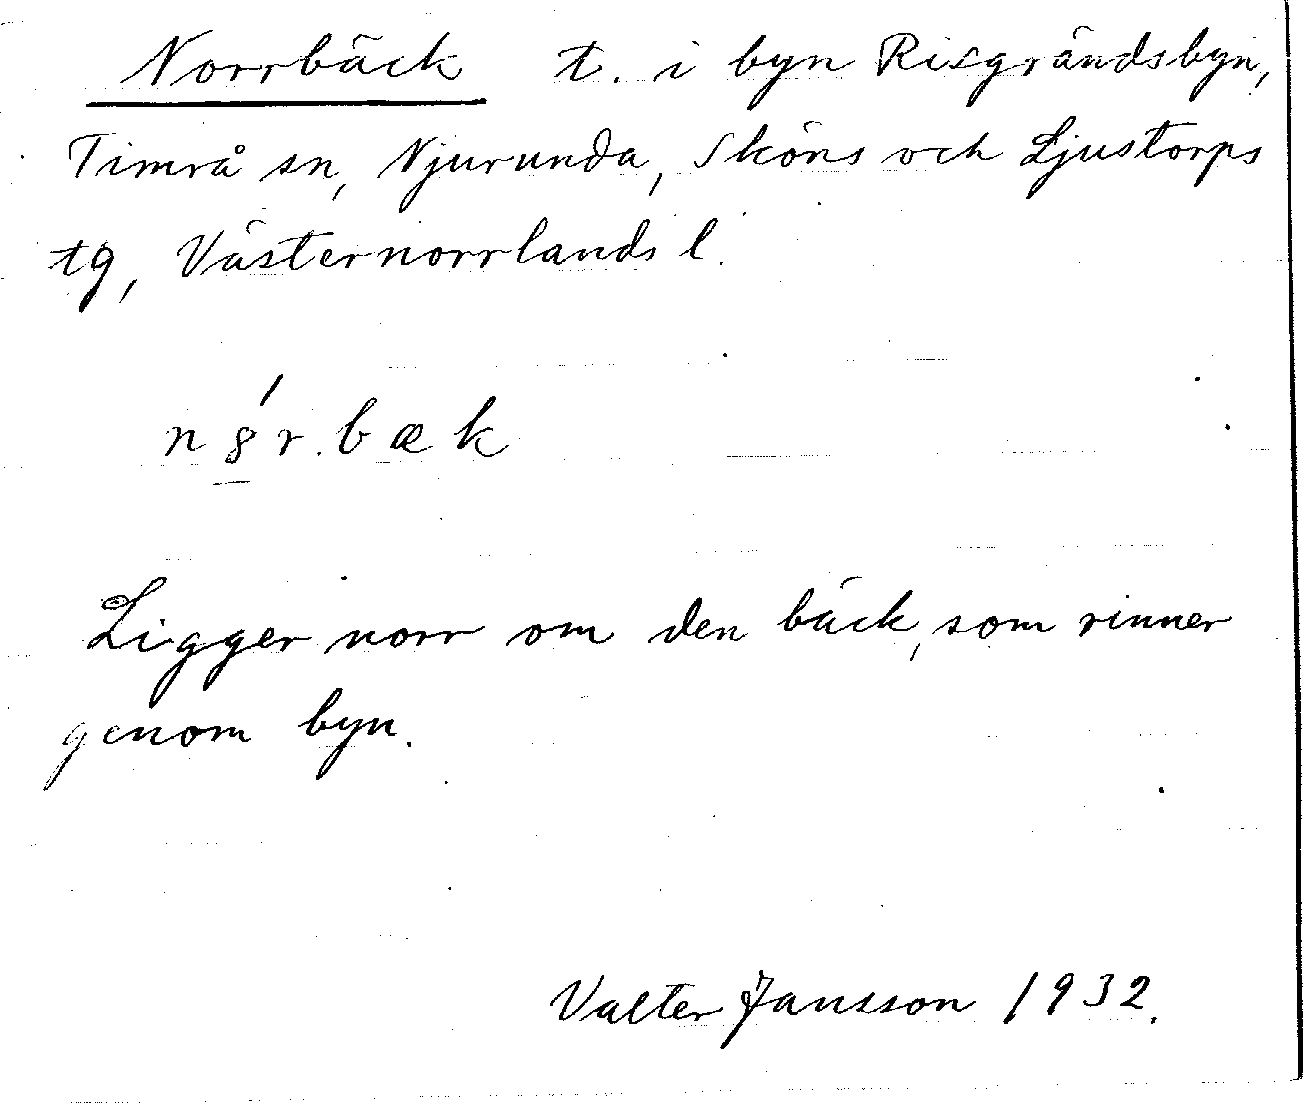 Norrbäck t. i byn Risgrändsbyn,
Timrå sn, Njurunda, Sköns och Ljustorps
tg, Västernorrlands l.
nȣ́r.bæk
Ligger norr om den bäck, som rinner
genom byn.
Valter Jansson 1932.